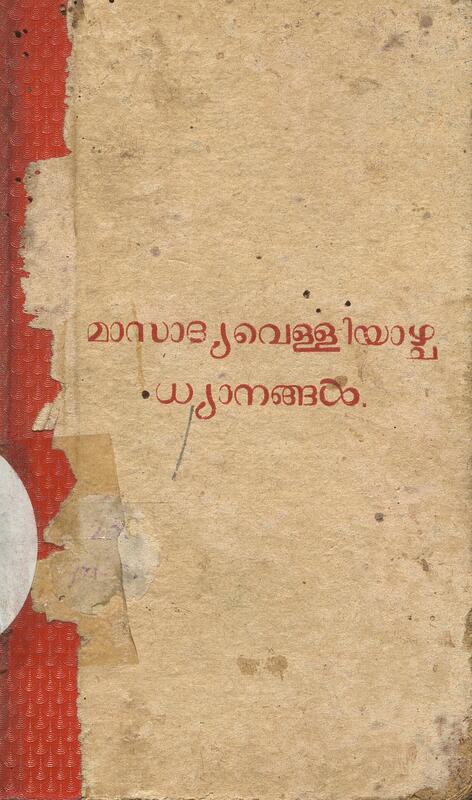 മാസാദ്യവെള്ളിയാഴ്ച
ധ്യാനങ്ങൾ.